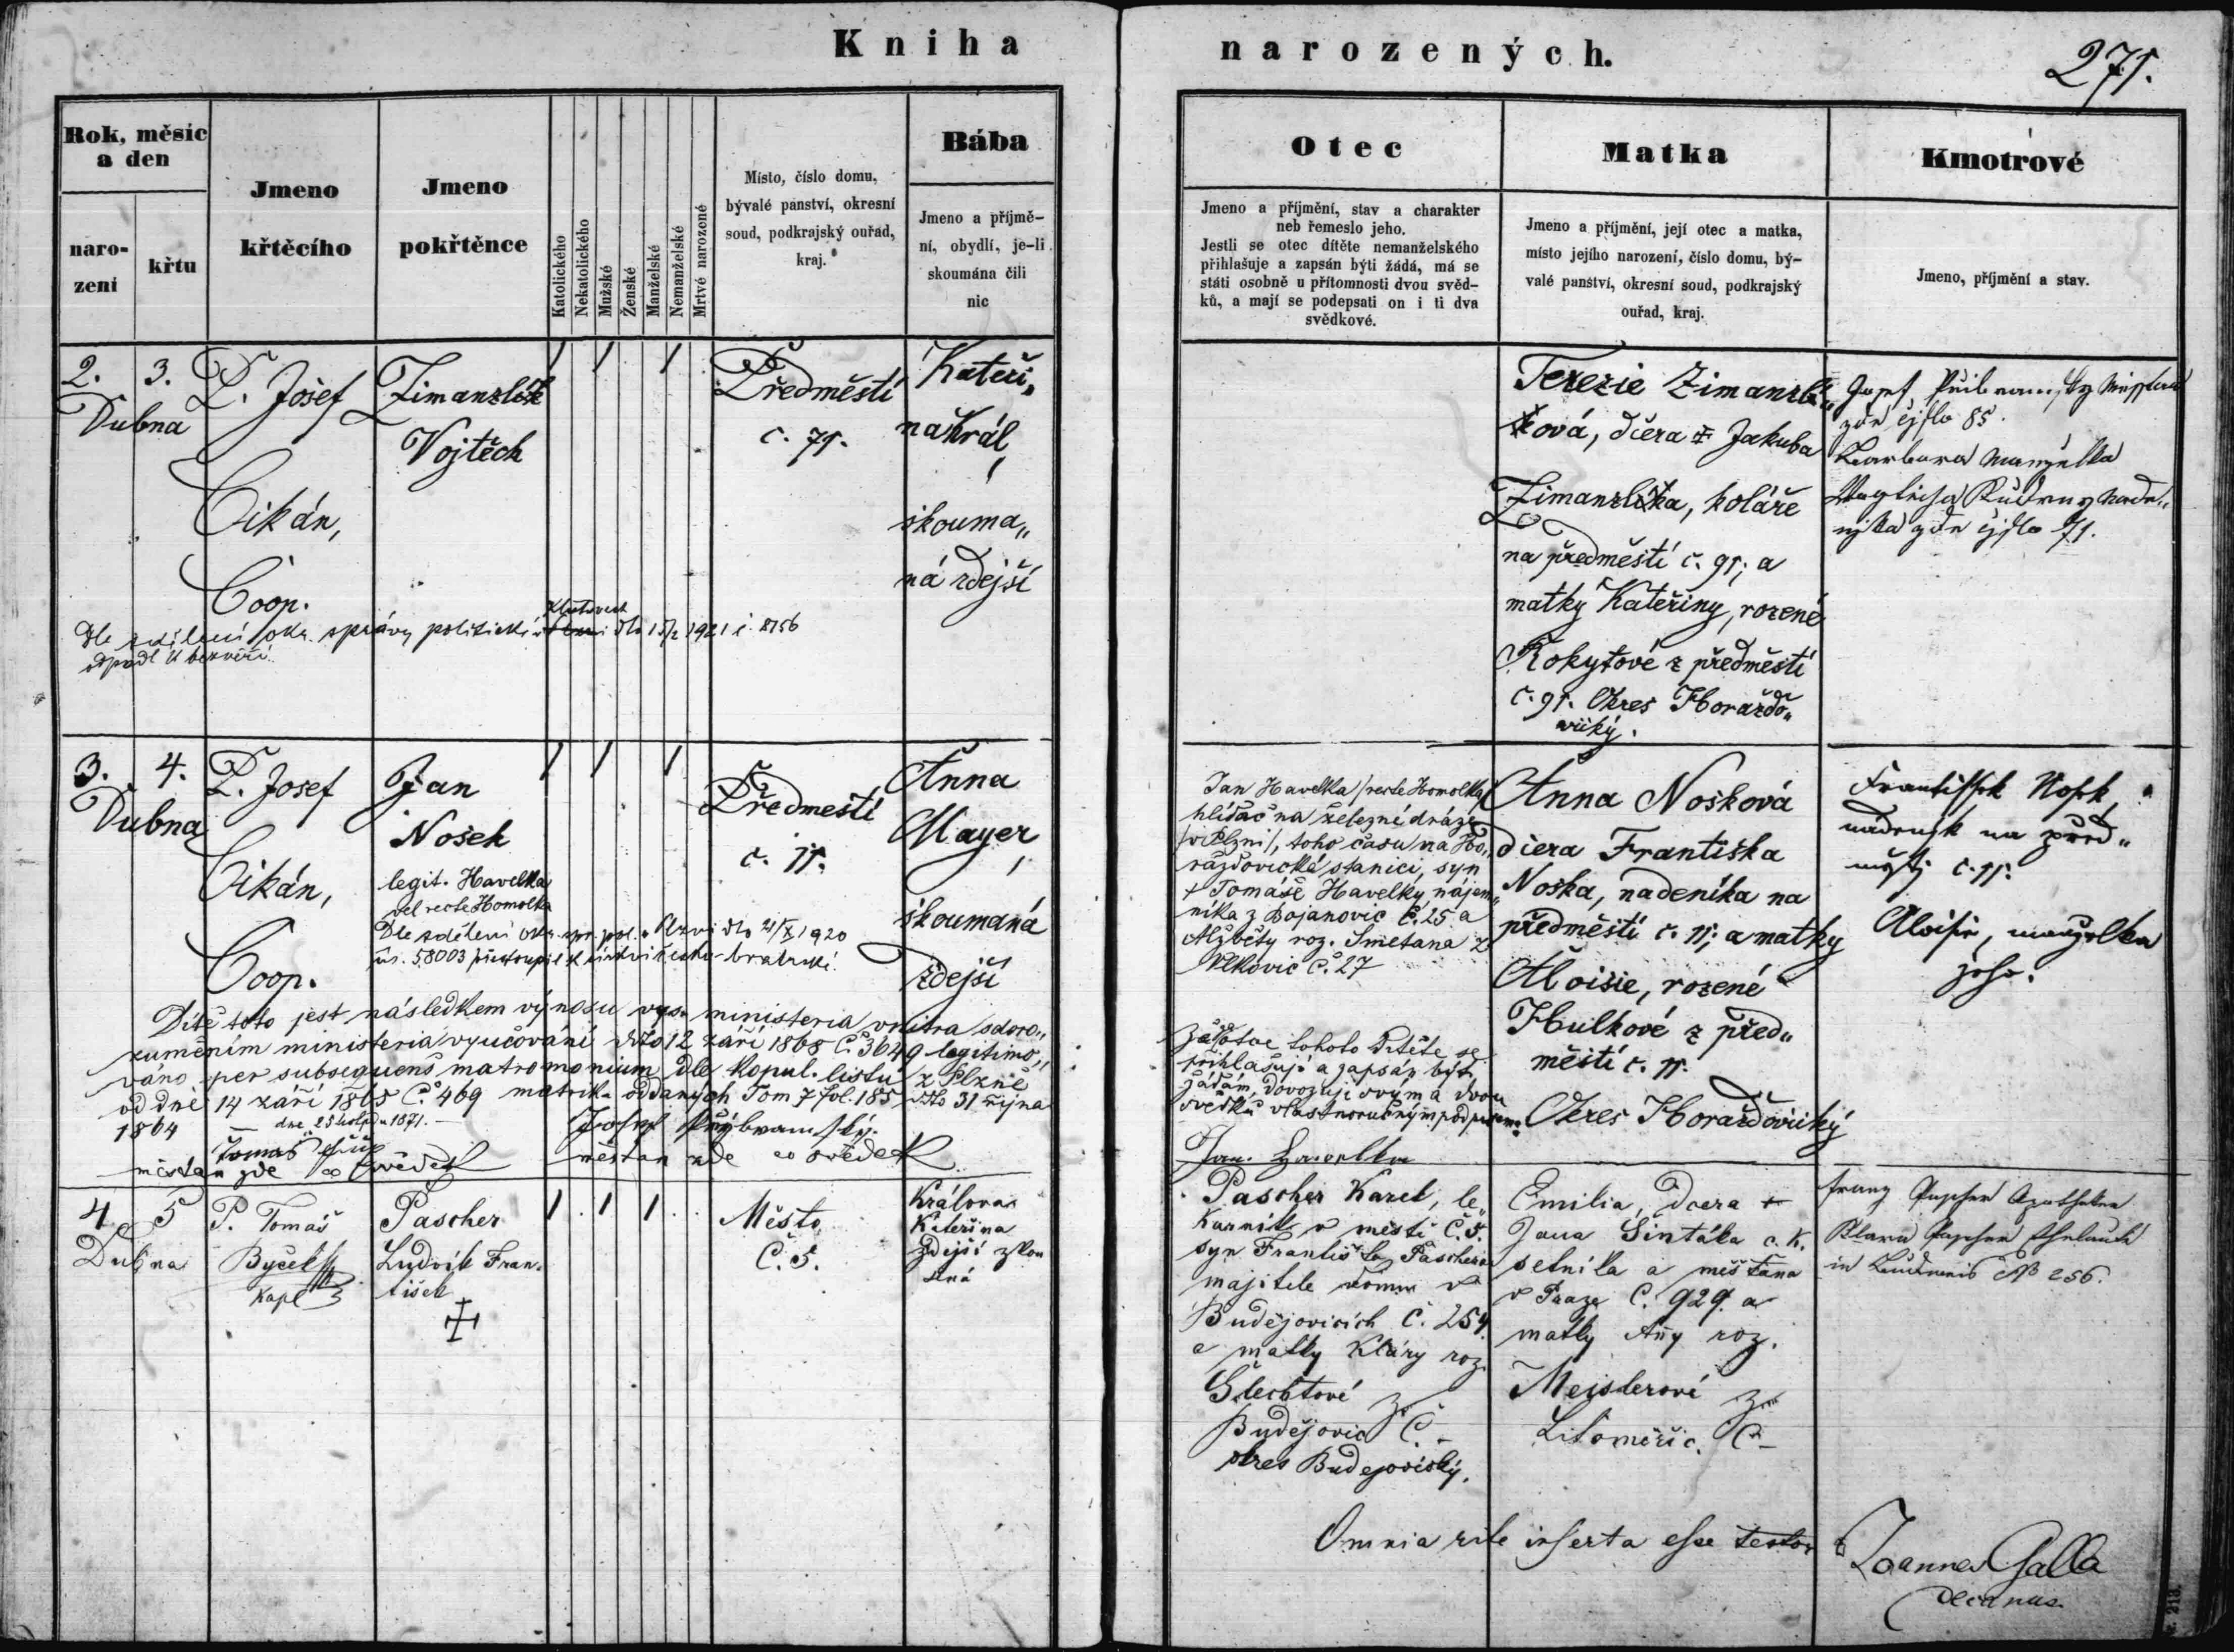 Kniha
narozených.
271.
Rok, měsíc
a den
naro-
zení
křtu
Jmeno
křtěcího
Jmeno
pokřtěnce
Katolického
Nekatolického
Mužské
Ženské
Manželské
Nemanželské
Mrtvé narozené
Místo, číslo domu,
bývalé panství, okresní
soud, podkrajský ouřad,
kraj.
Bába
Jmeno a příjmě-
ní, obydlí, je-li
skoumána čili
nic
Otec
Jmeno a příjmění, stav a charakter
neb řemeslo jeho.
Jestli se otec dítěte nemanželského
přihlašuje a zapsán býti žádá, má se
státi osobně u přítomnosti dvou svěd-
ků, a mají se podepsati on i ti dva
svědkové.
Matka
Jmeno a příjmění, její otec a matka,
místo jejího narození, číslo domu, bý-
valé panství, okresní soud, podkrajský
ouřad, kraj.
Kmotrové
Jmeno, příjmění a stav.
2. 3.
Dubna
P. Josef
Cikán,
Coop.
Zimanzlík
Vojtěch
/ / /
Předměstí
č. 71.
Kateři„
na Král,
skouma„
ná zdejší
Terezie Zimanzlí„
ková, dcera † Jakuba
Zimanzlíka, koláře
na předměstí č. 91; a
matky Kateřiny, rozené
Kokytové z předměstí
č. 91. Okres Horažďo„
vický.
Josef
85.
Barbara manželka
71.
Dle sdělení okr. správy politické v Klatovech dto 15/2 1921 č. 8156
odpadl k bezvěří.
3. 4.
Dubna
P. Josef
Cikán,
Coop.
Jan
Nošek
legit. Havelka
vel recte Homolka
Dle sdělení okr. spr. pol. v Plzni dto 21/X 1920
čís. 58003 přistoupil k církvi česko-bratrské.
/ / /
Předmestí
č. 11.
Anna
Mayer,
skoumaná
zdejší
Jan Havelka /recte Homolka/
hlídač na železné dráze
/v Plzni/, toho času na Ho„
ražďovické stanici, syn
† Tomáše Havelky, nájem„
níka z Bojanovic č. 25 a
Alžběty roz. Smetana z
Vlkovic č. 27
Za otce tohoto dítěte se
přihlašuji a zapsán býti
žádám, dovozuji svým a dvou
svědků vlastnoručným podpisem:
Jan Havelka
Anna Nošková
dcera Františka
Noška, nadeníka na
předměstí č. 11; a matky
Aloisie, rozené
Hulkové z před„
městí č. 11.
Okres Horažďovický
František Nosek,
nadeník na před„
městj č. 11.
Aloisie, manželka
jeho.
Dítě toto jest následkem výnosu vys. ministeria vnitra sdoro„
zuměním ministeria vyučování dto 12 září 1868 č. 3649 legitimo„
váno per subsequens matromonium dle kopul. listu z Plzně
od dne 14 září 1865 č. 469 matrik oddaných Tom 7 fol. 185 dto 31 října
1864 — dne 25 listopadu 1871. —
Tomáš
měšťan zde co svědek
Josef Přibramský.
měštan zde co svědek
4 5
Dubna
P. Tomáš
Byček
Kapl
Pascher
Ludvík Fran-
tišek
/ / /
Město
Č. 5.
Králova
Kateřina
zdejší zkou
šná
Pascher Karel, le„
kárník v městě Č. 5.
syn Františka Paschera
majitele domu v
Budějovicích č. 254
a matky Kláry roz.
Šlechtové z
Budějovic Č. –
okres Budejovický.
Emilia, dcera †
Jana Šintáka c. k.
setníka a měšťana
v Praze Č. 929. a
matky Anny roz.
Mejslerové z
Litoměřic. Č –
Franz Pascher Apotheker
Klara Pascher
in Budweis № 256.
Omnia rite inserta esse testor
Joannes Galla
decanus.